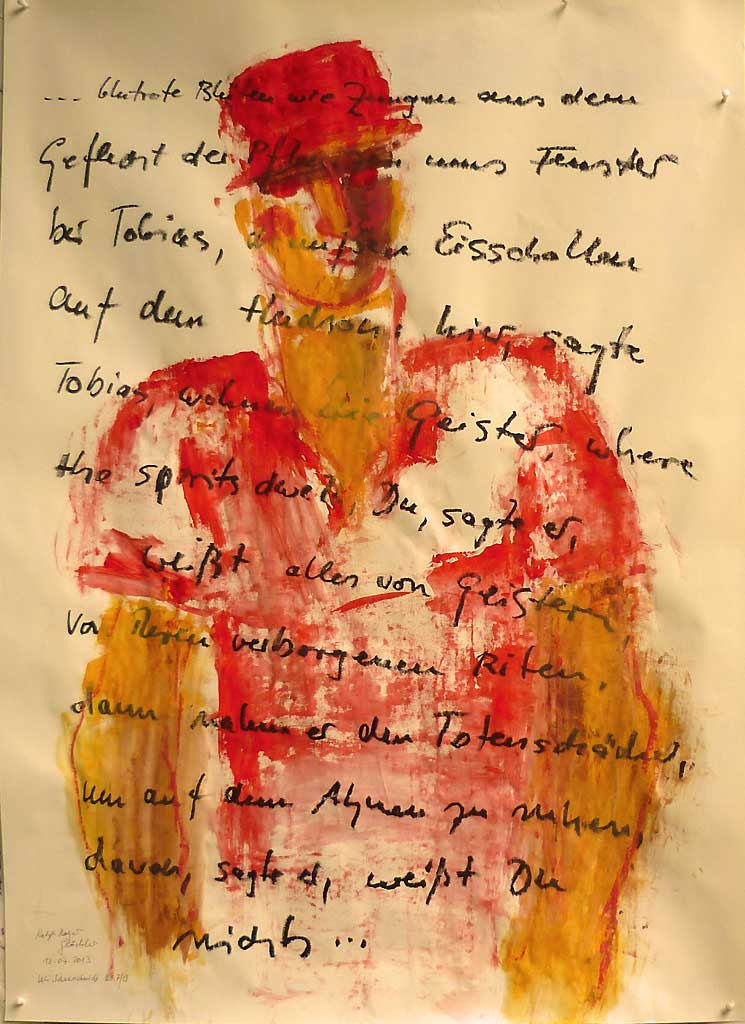 ... blutrote Blüten wie Zungen aus dem
Geflecht der Pflanzen ums Fenster
bei Tobias, draußen Eisschollen
auf dem Hudson. hier, sagte
Tobias, wohnen die Geister, where
the spirits dwell, Du, sagte er,
weißt alles von Geistern,
von deren verborgenen Riten,
dann nahm er den Totenschädel,
um auf den Ahnen zu ruhen,
davon, sagte er, weißt Du
nichts ...
13.04.2013